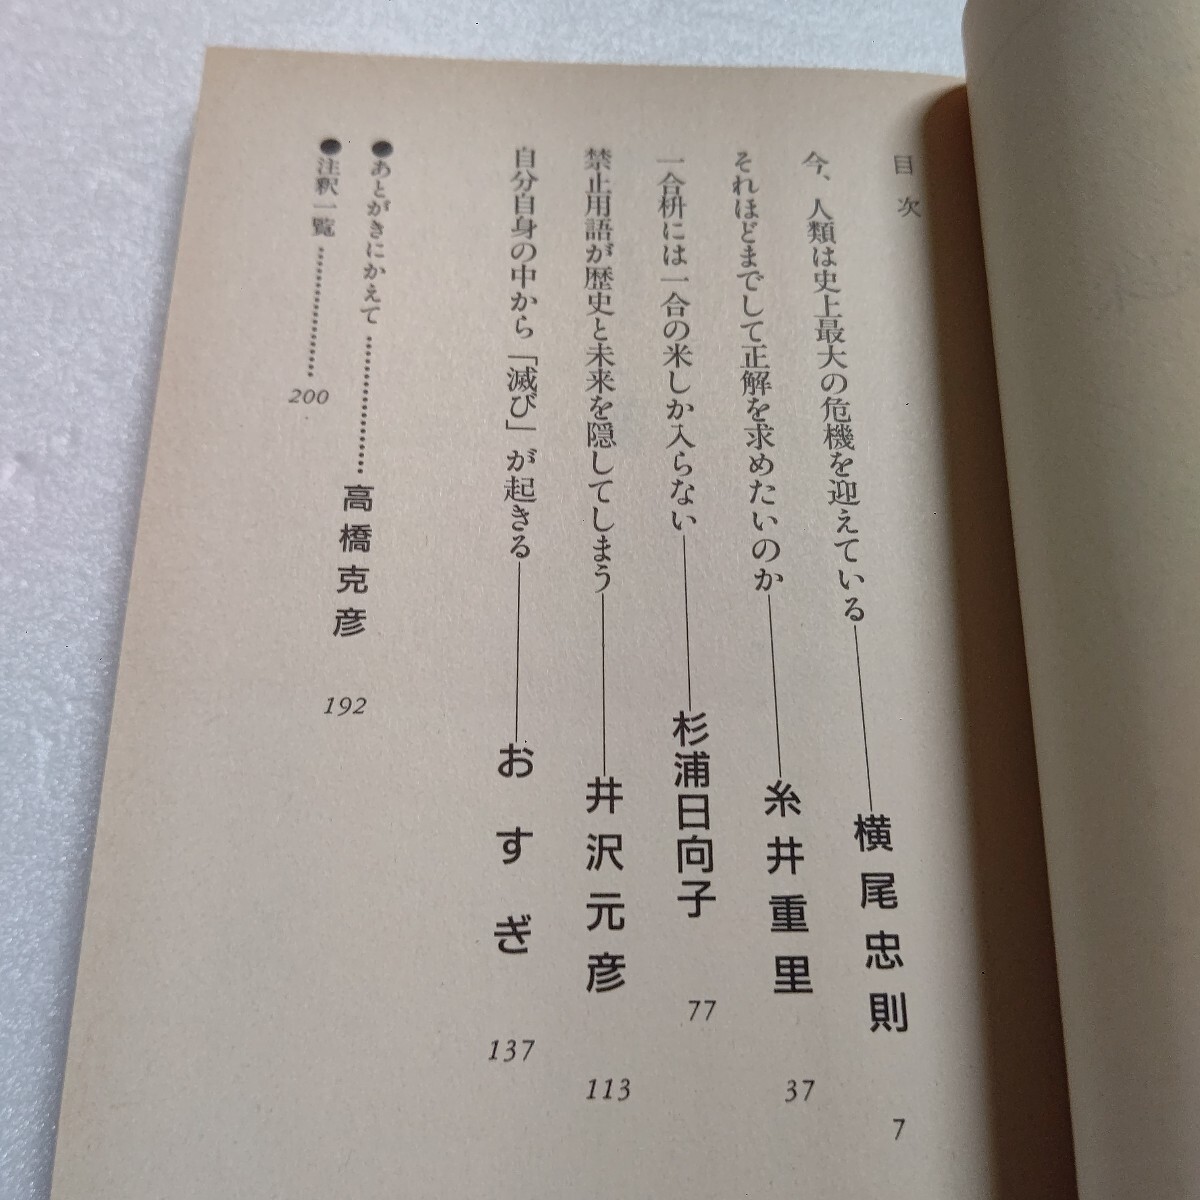 目次
今、人類は史上最大の危機を迎えている――横尾忠則 7
それほどまでして正解を求めたいのか――糸井重里 37
一合枡には一合の米しか入らない――杉浦日向子 77
禁止用語が歴史と未来を隠してしまう――井沢元彦 113
自分自身の中から「滅び」が起きる――おすぎ 137
●あとがきにかえて………………高橋克彦 192
●注釈一覧………………200